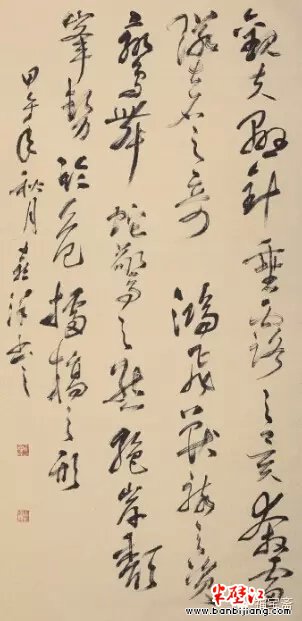 觀夫懸針垂露之異奔雷
墜石之奇鴻飛獸駭之資
鸞舞蛇驚之態絕岸頹
峯勢臨危據槁之形
甲午年秋月書之
半壁江
www.banbijiang.com